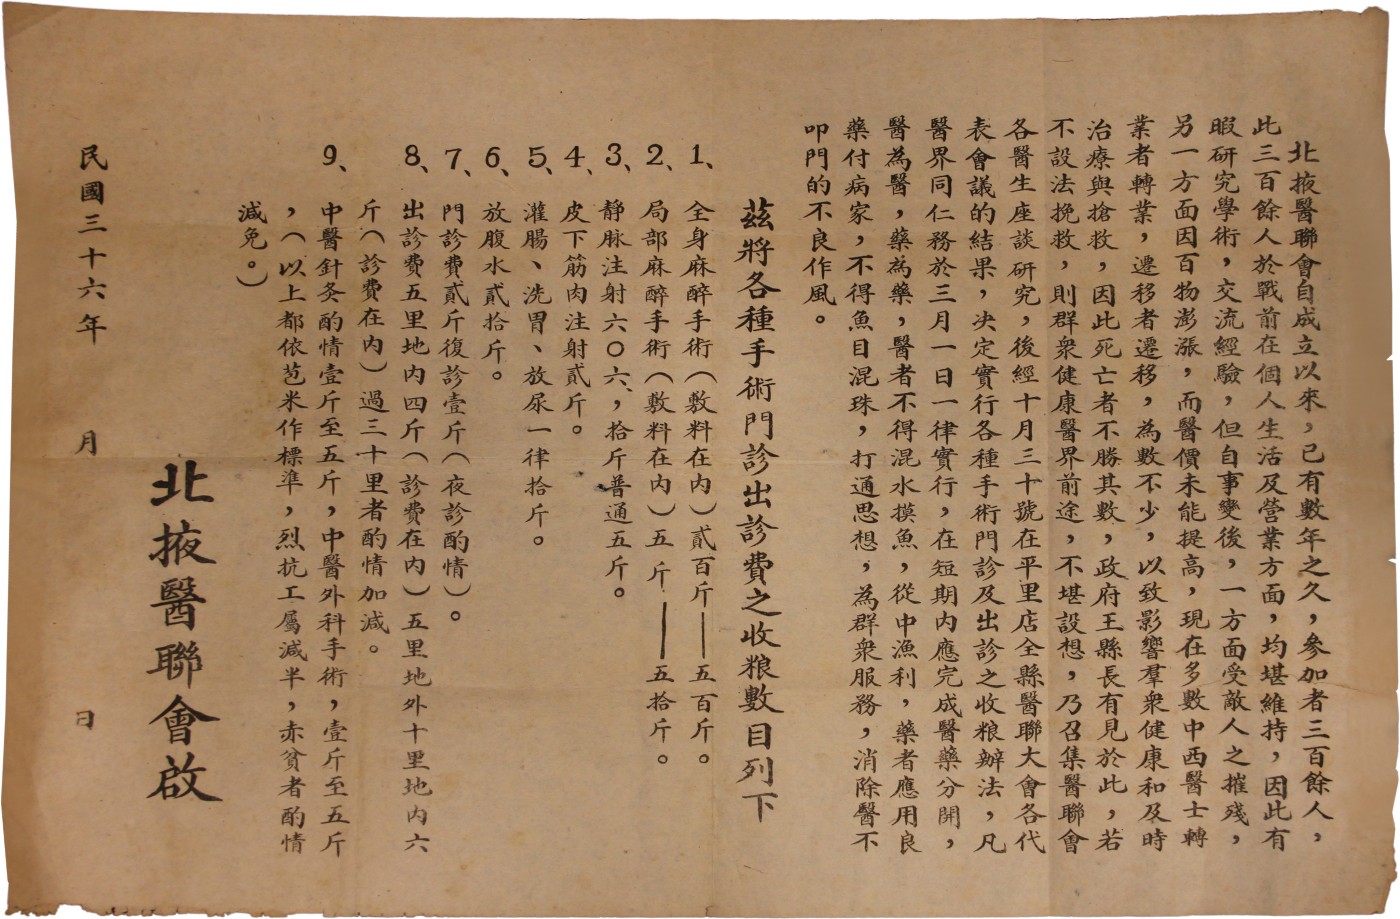 北掖醫聯會自成立以來，已有數年之久，參加者三百餘人，
此三百餘人於戰前在個人生活及營業方面，均堪維持，因此有
暇研究學術，交流經驗，但自事變後，一方面受敵人之摧殘，
另一方面因百物澎漲，而醫價未能提高，現在多數中西醫士轉
業者轉業，遷移者遷移，為數不少，以致影響羣衆健康和及時
治療與搶救，因此死亡者不勝其數，政府王縣長有見於此，若
不設法挽救，則群衆健康醫界前途，不堪設想，乃召集醫聯會
各醫生座談研究，後經十月三十號在平里店全縣醫聯大會各代
表會議的結果，決定實行各種手術門診及出診之收粮辦法，凡
醫界同仁務於三月一日一律實行，在短期内應完成醫藥分開，
醫為醫，藥為藥，醫者不得混水摸魚，從中漁利，藥者應用良
藥付病家，不得魚目混珠，打通思想，為群衆服務，消除醫不
叩門的不良作風。
茲將各種手術門診出診費之收粮數目列下
1、全身麻醉手術（敷料在内）貳百斤——五百斤。
2、局部麻醉手術（敷料在内）五斤——五拾斤。
3、靜脉注射六〇六，拾斤普通五斤。
4、皮下筋肉注射貳斤。
5、灌腸、洗胃、放尿一律拾斤。
6、放腹水貳拾斤。
7、門診費貳斤復診壹斤（夜診酌情）。
8、出診費五里地内四斤（診費在内）五里地外十里地内六
斤（診費在内）過三十里者酌情加減。
9、中醫針灸酌情壹斤至五斤，中醫外科手術，壹斤至五斤
，（以上都依苞米作標準，烈抗工屬減半，赤貧者酌情
減免。）
北掖醫聯會啟
民國三十六年 月 日